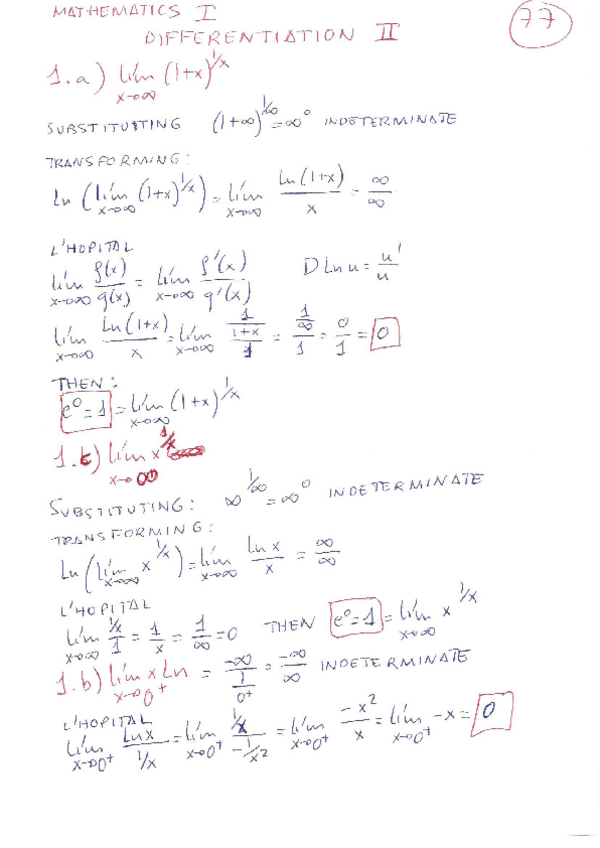 MATHEMATICS I
77
DIFFERENTIATION II
1.a) lím (1+x)^1/x
x→∞
SUBSTITUTING (1+∞)^1/∞ = ∞^0 INDETERMINATE
TRANSFORMING:
Ln (lím x→∞ (1+x)^1/x) = lím x→∞ Ln(1+x)/x = ∞/∞
L'HOPITAL
lím x→∞ f(x)/g(x) = lím x→∞ f'(x)/g'(x) D Ln u = u'/u
lím x→∞ Ln(1+x)/x = lím x→∞ (1/(1+x))/1 = (1/∞)/1 = 0/1 = 0
THEN:
e^0 = 1 = lím x→∞ (1+x)^1/x
1.c) lím x^1/x
x→∞
SUBSTITUTING: ∞^1/∞ = ∞^0 INDETERMINATE
TRANSFORMING:
Ln (lím x→∞ x^1/x) = lím x→∞ Ln x/x = ∞/∞
L'HOPITAL
lím x→∞ (1/x)/1 = 1/x = 1/∞ = 0 THEN e^0 = 1 = lím x→∞ x^1/x
1.b) lím x→0+ x Ln = -∞/(1/0+) = -∞/∞ INDETERMINATE
L'HOPITAL
lím x→0+ Lnx/(1/x) = lím x→0+ (1/x)/(-1/x^2) = lím x→0+ -x^2/x = lím x→0+ -x = 0